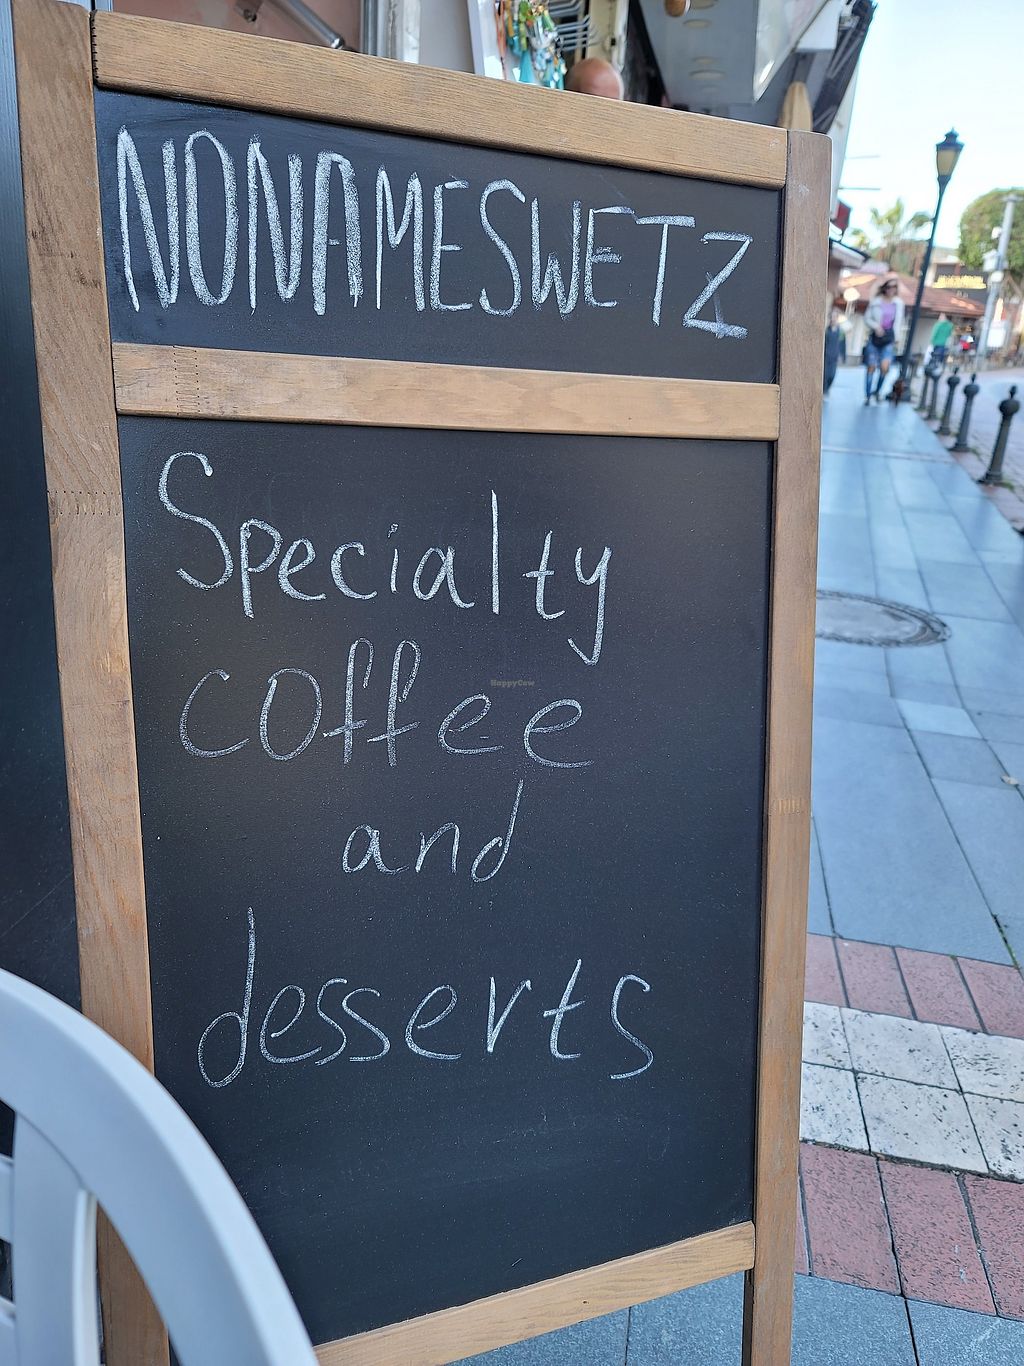 NONAMESWETZ
Specialty
coffee
and
desserts
HappyCow